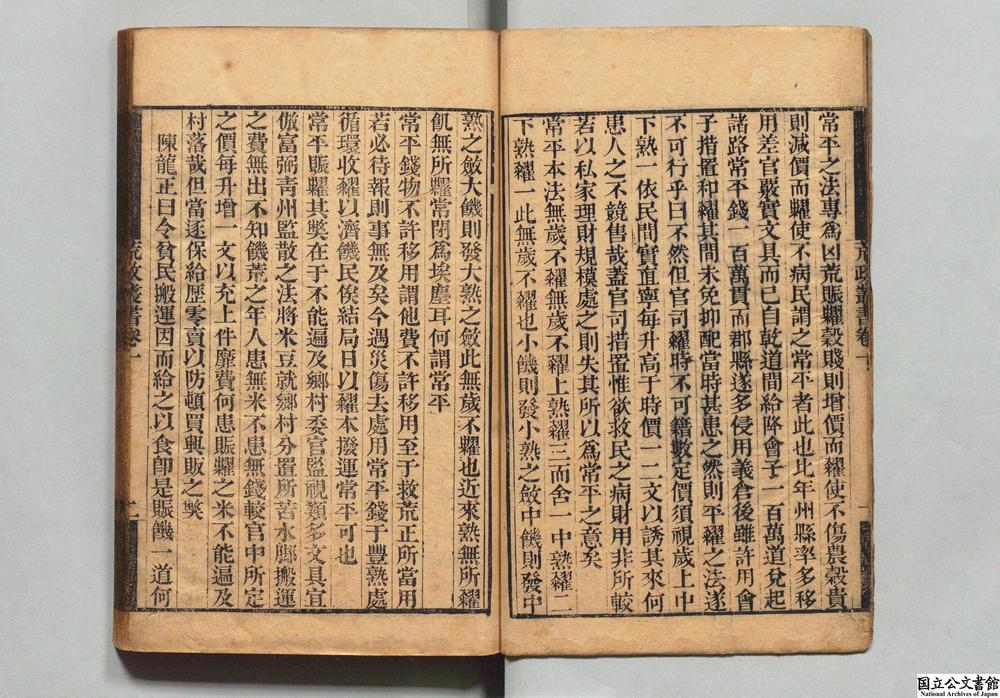 常平之法專為凶荒賑糶穀賤則增價而糴使不傷農穀貴
則減價而糶使不病民謂之常平者此也比年州縣率多移
用差官覈實文具而已自乾道間給降會子一百萬道兌起
諸路常平錢一百萬貫而郡縣遂多侵用義倉後雖許用會
子措置和糴其間未免抑配當時甚患之然則平糴之法遂
不可行乎曰不然但官司糴時不可籍數定價須視歲上中
下熟一依民間實直寧每升高于時價一二文以誘其來何
患人之不競售哉蓋官司措置惟欲救民之病財用非所較
若以私家理財規模處之則失其所以為常平之意矣
常平本法無歲不糴無歲不糶上熟糴三而舍一中熟糴二
下熟糴一此無歲不糴也小饑則發小熟之斂中饑則發中
熟之斂大饑則發大熟之斂此無歲不糶也近來熟無所糴
飢無所糶常閉為埃塵耳何謂常平
常平錢物不許移用謂他費不許移用至于救荒正所當用
若必待報則事無及矣今遇災傷去處用常平錢于豐熟處
循環收糴以濟饑民俟結局日以糴本撥運常平可也
常平賑糶其獘在于不能遍及鄉村委官監視類多文具宜
倣富弼青州監散之法將米豆就鄉村分置所苦水腳搬運
之費無出不知饑荒之年人患無米不患無錢較官中所定
之價每升增一文以充上件靡費何患賑糶之米不能遍及
村落哉但當逐保給歷零賣以防頓買興販之獘
陳龍正曰令貧民搬運因而給之以食卽是賑饑一道何
荒政叢書卷一
荒政叢書卷一
二
国立公文書館
National Archives of Japan